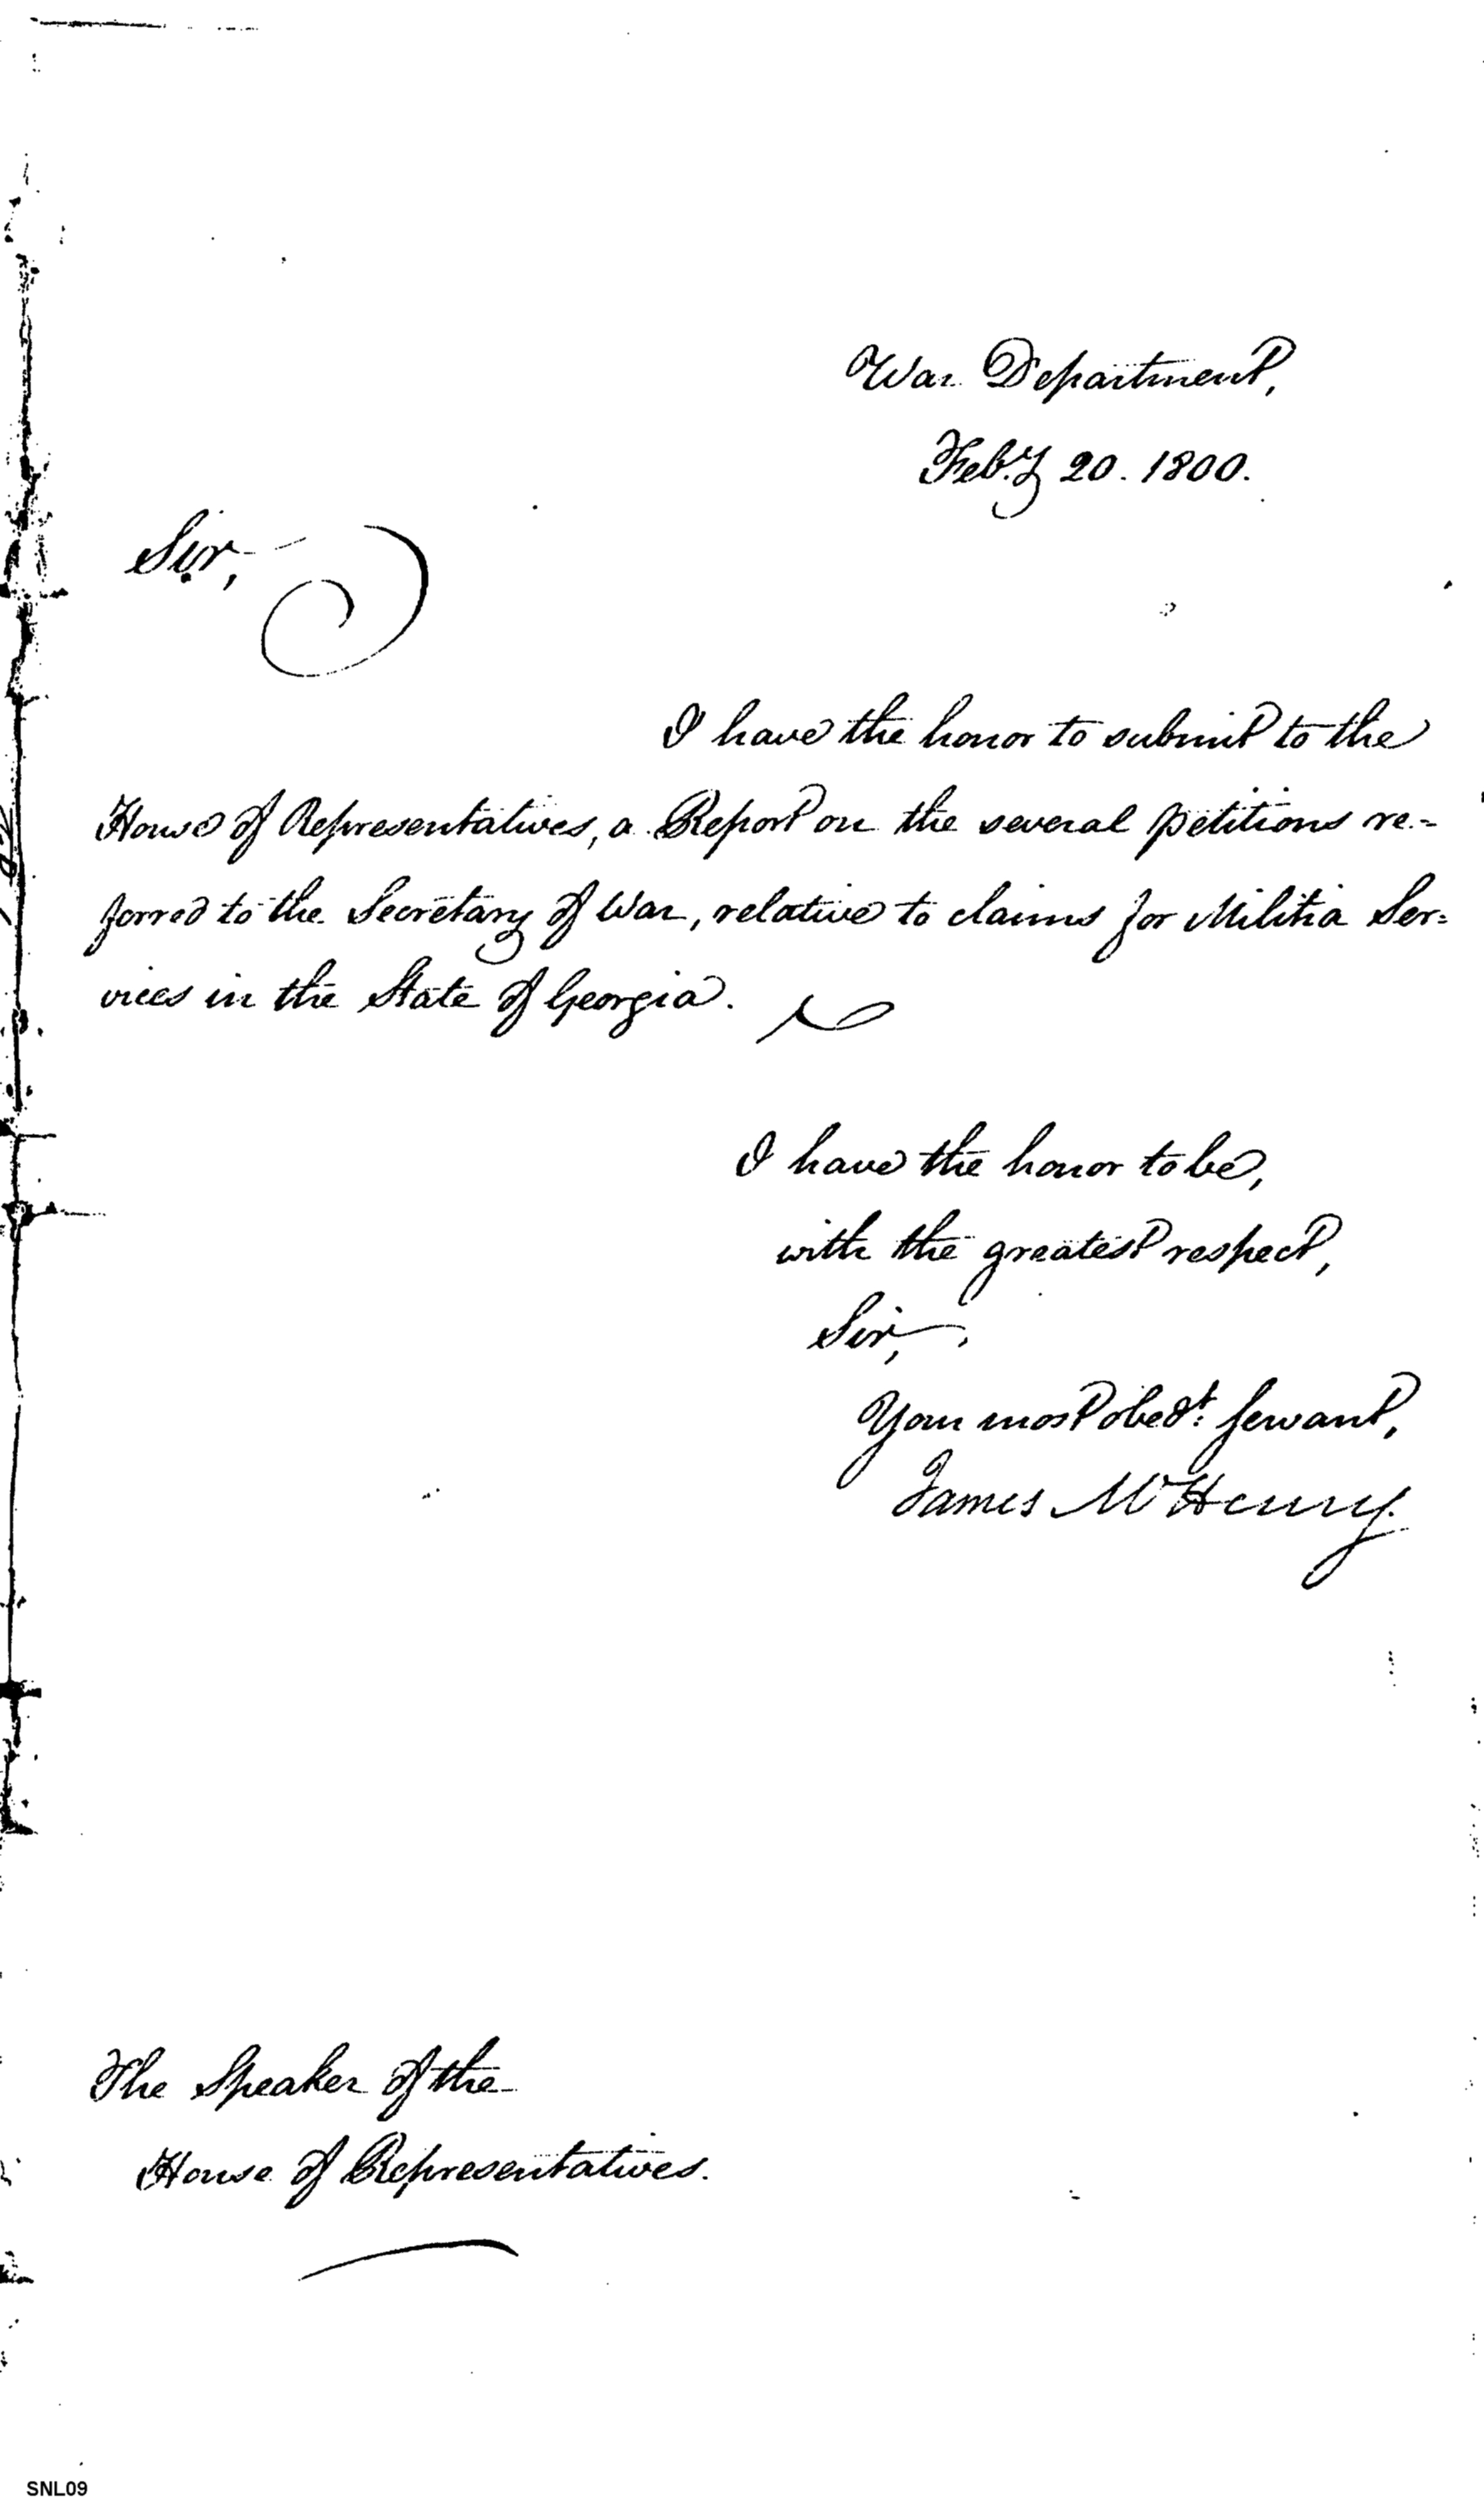 War Department,
Feb.y 20. 1800.
Sir,
I have the honor to submit to the
House of Representatives, a Report on the several petitions re-
ferred to the Secretary of War, relative to claims for Militia Ser=
vices in the State of Georgia.
I have the honor to be,
with the greatest respect,
Sir,
Your most obedt. servant,
James McHenry.
The Speaker of the
House of Representatives.
SNL09